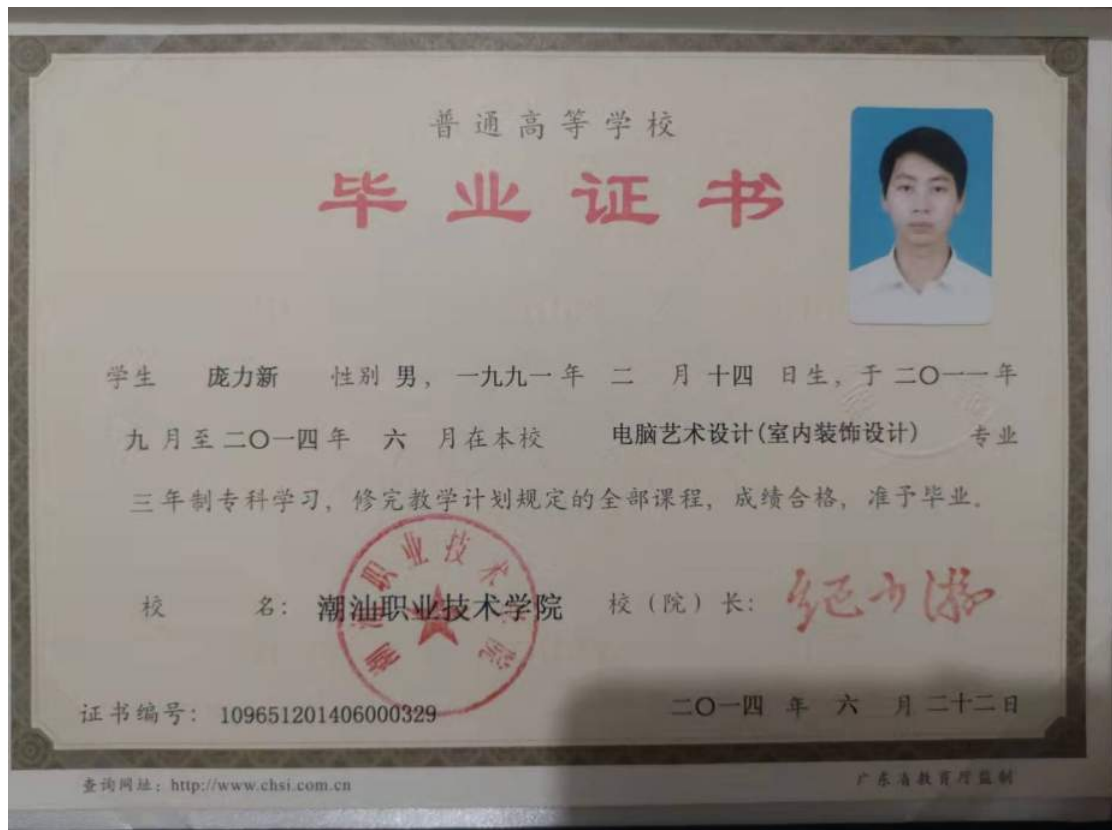 普通高等学校
毕业证书
学生 庞力新 性别 男，一九九一年 二 月 十四 日生，于 二〇一一年
九 月至 二〇一四年 六 月在本校 电脑艺术设计(室内装饰设计) 专业
三年制专科学习，修完教学计划规定的全部课程，成绩合格，准予毕业。
潮汕职业技术学院
校 名：潮汕职业技术学院 校（院）长：纪少游
证书编号：109651201406000329 二〇一四 年 六 月 二十二日
查询网址：http://www.chsi.com.cn 广东省教育厅监制